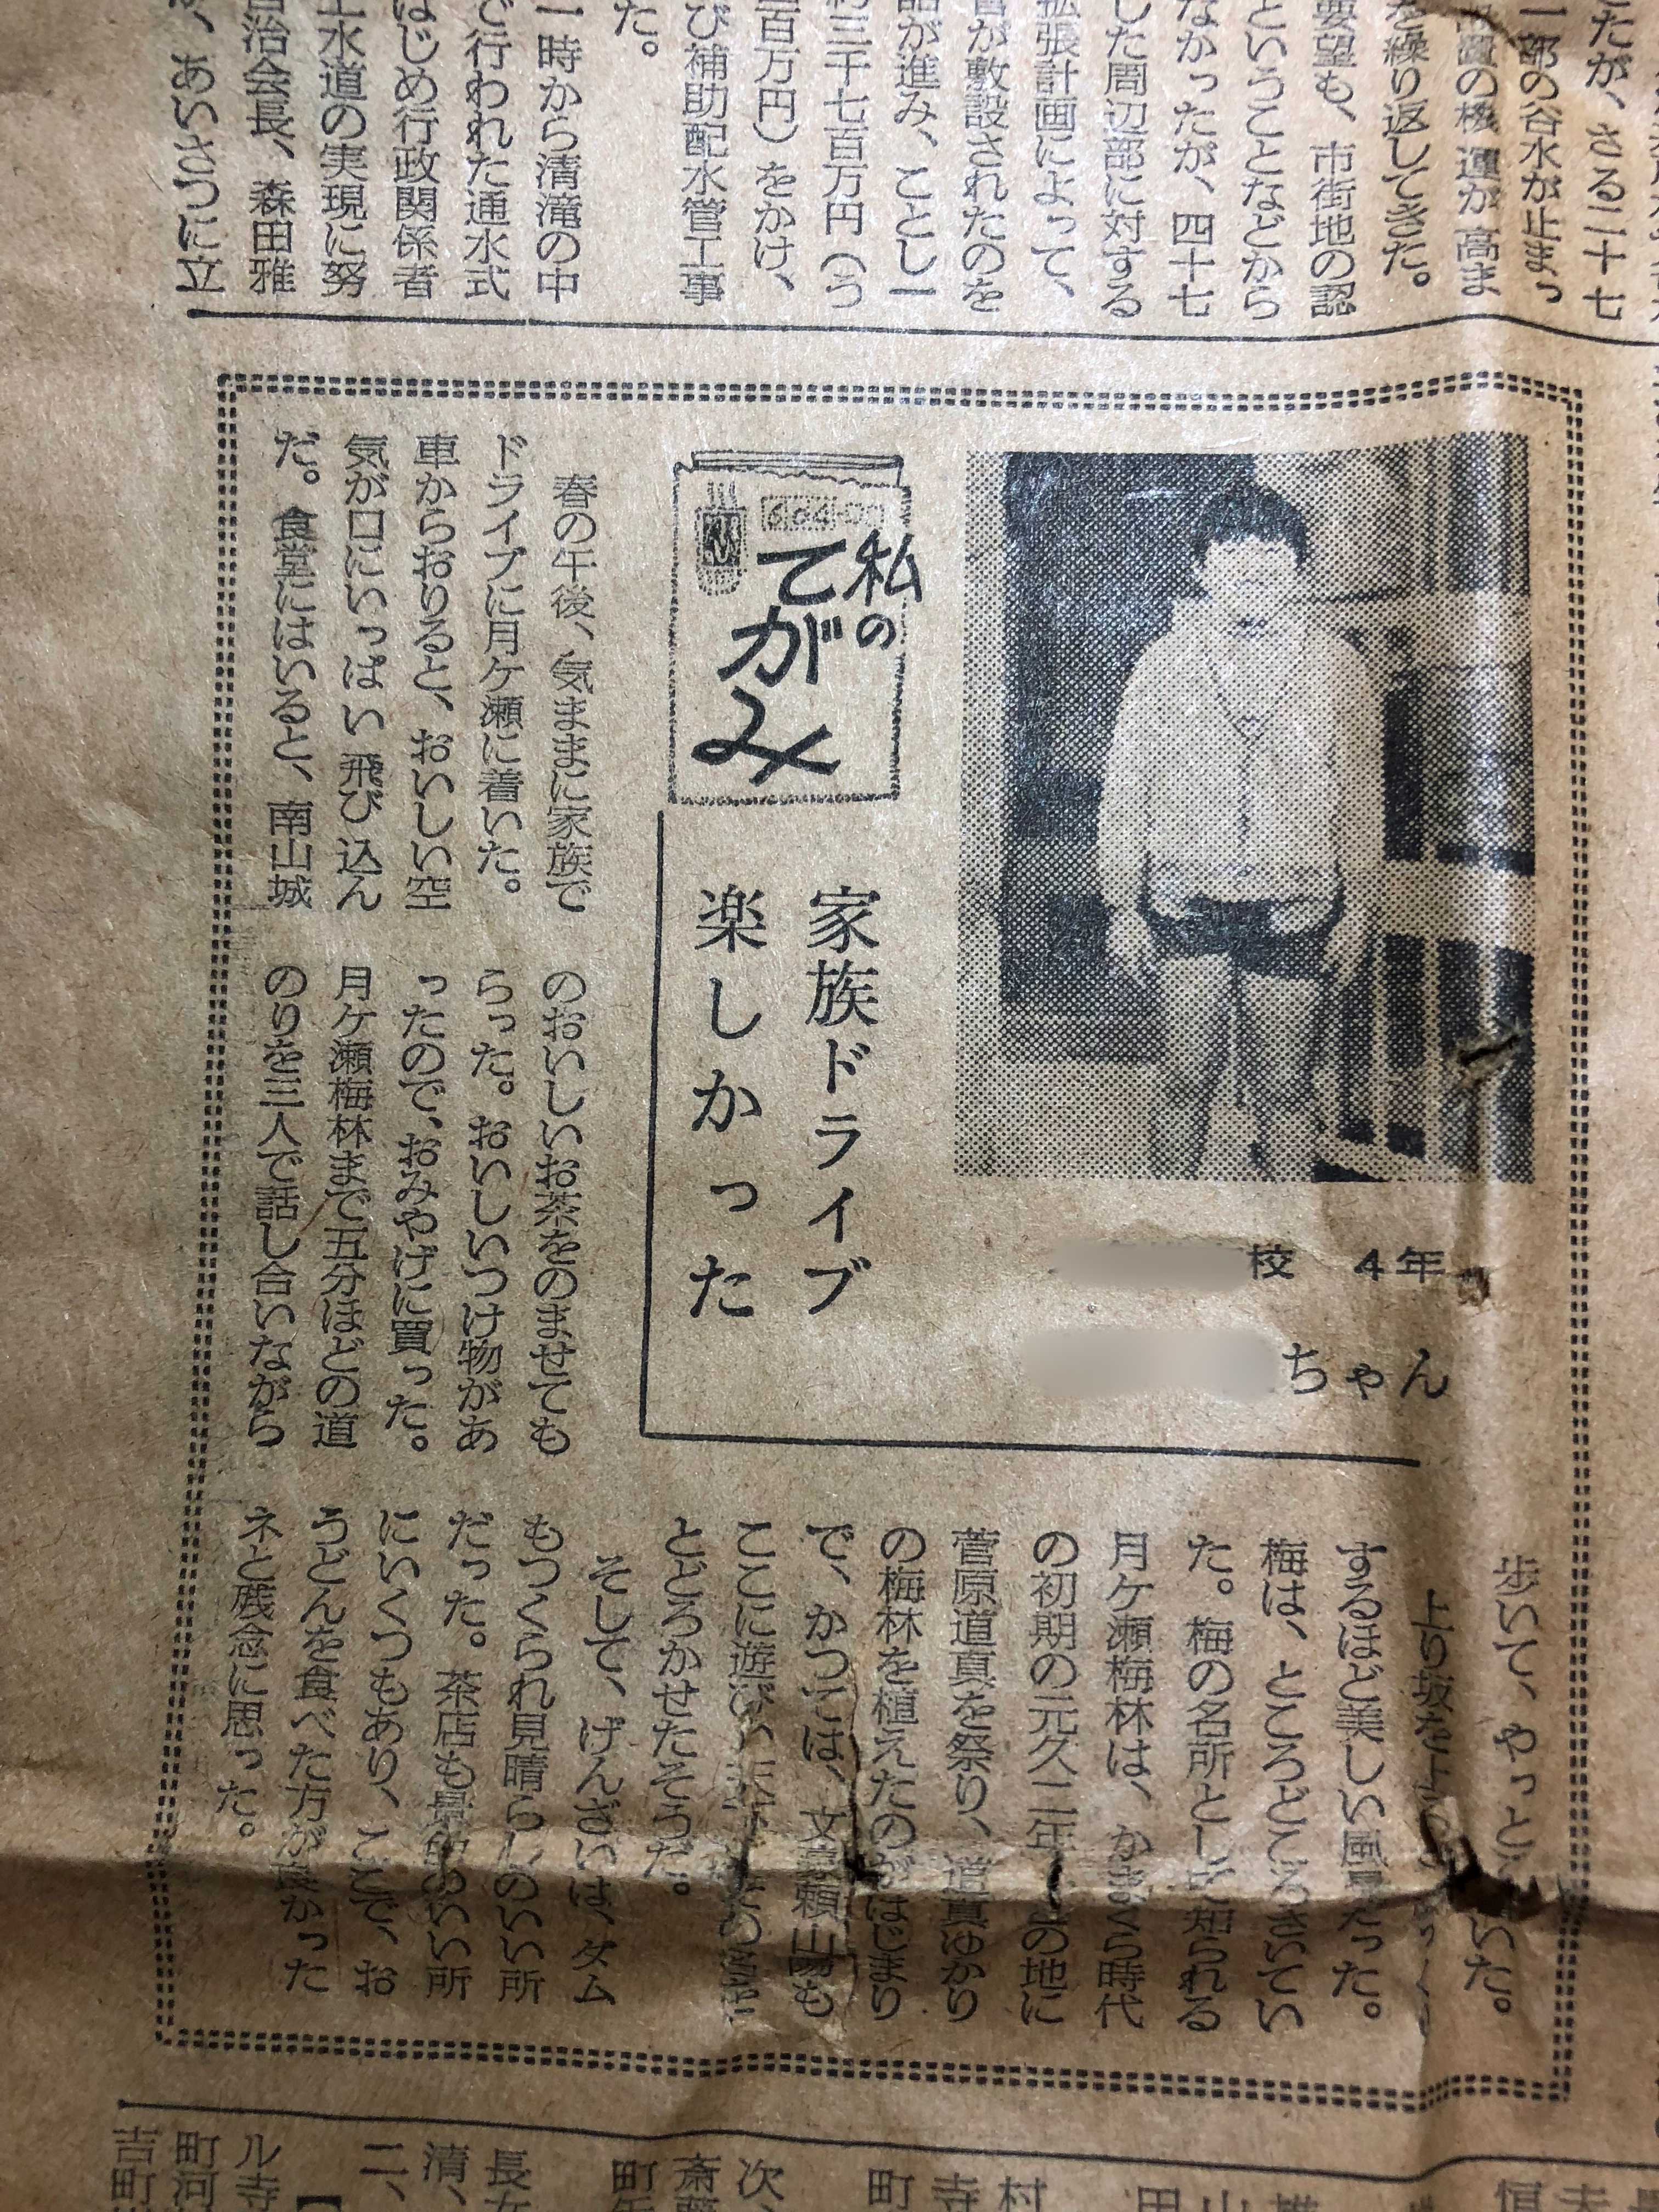 こたが、さる二十七
一部の谷水が止まっ
運が高ま
を繰り返してきた。
要望も、市街地の認
ということなどから
なかったが、四十七
した周辺部に対する
拡張計画によって、
管が敷設されたのを
話が進み、ことし一
三千七百万円（う
百万円）をかけ、
び補助配水管工事
た。
一時から清滝の中
で行われた通水式
はじめ行政関係者
上水道の実現に努
自治会長、森田雅
、あいさつに立
校 4年
ちゃん
私の
てがみ
家族ドライブ
楽しかった
春の午後、気ままに家族で
ドライブに月ケ瀬に着いた。
車からおりると、おいしい空
気が口にいっぱい飛び込ん
だ。食堂にはいると、南山城
のおいしいお茶をのませても
らった。おいしいつけ物があ
ったので、おみやげに買った。
月ケ瀬梅林まで五分ほどの道
のりを三人で話し合いながら
歩いて、やっと いた。
上り坂
するほど美しい風景だった。
梅は、ところどころさいてい
た。梅の名所として知られる
月ケ瀬梅林は、かまくら時代
の初期の元久二年 の地に
菅原道真を祭り、道真ゆかり
の梅林を植えたのがはじまり
で、かつては、文 頼山陽も
ここに遊び
とどろかせたそうだ。
そして、げんざいは、ダム
もつくられ見晴らしのいい所
だった。茶店も景色のいい所
にいくつもあり、ここで、お
うどんを食べた方が良かった
ネと残念に思った。
村
寺
町
次、
斎藤
町
長
清、
二、
ル寺
町河
吉町